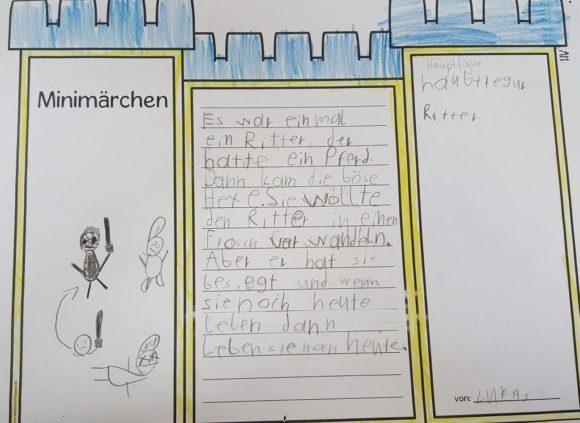 Minimärchen
Es war ein mal
ein Ritter, der
hatte ein Pferd.
Dann kam die böse
Hexe. Sie wollte
den Ritter in einen
Frosch ver wandeln.
Aber er hat sie
besiegt und wenn
sie noch heute
leben dann
Leben sie noch heute.
Hauptfigur
haubtfegur
Ritter
von: LUKAS